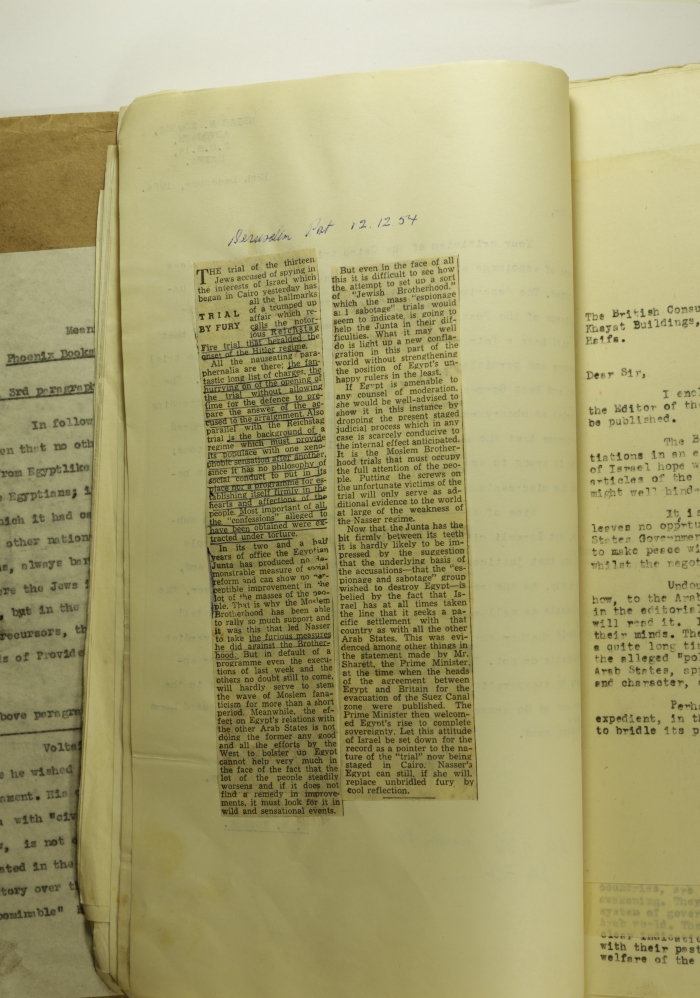 Jerusalem Post 12.12.54
THE trial of the thirteen
Jews accused of spying in
the interests of Israel which
began in Cairo yesterday has
all the hallmarks
TRIAL of a trumped up
BY FURY affair which re-
calls the notor-
ious Reichstag
Fire trial that heralded the
onset of the Hitler regime.
All the nauseating para-
phernalia are there; the fan-
tastic long list of charges, the
hurrying on of the opening of
the trial without allowing
time for the defence to pre-
pare the answer of the ac-
cused to the arraignment. Also
parallel with the Reichstag
trial is the background of a
regime which must provide
its populace with one xeno-
phobic sensation after another,
since it has no philosophy of
social conduct to put in its
place nor a programme for es-
tablishing itself firmly in the
hearts and affections of the
people. Most important of all,
the "confessions" alleged to
have been obtained were ex-
tracted under torture.
In its two and a half
years of office the Egyptian
Junta has produced no de-
monstrable measure of social
reform and can show no per-
ceptible improvement in the
lot of the masses of the peo-
ple. That is why the Moslem
Brotherhood has been able
to rally so much support and
it was this that led Nasser
to take the furious measures
he did against the Brother-
hood. But in default of a
programme even the execu-
tions of last week and the
others no doubt still to come,
will hardly serve to stem
the wave of Moslem fana-
ticism for more than a short
period. Meanwhile, the ef-
fect on Egypt's relations with
the other Arab States is not
doing the former any good
and all the efforts by the
West to bolster up Egypt
cannot help very much in
the face of the fact that the
lot of the people steadily
worsens and if it does not
find a remedy in improve-
ments, it must look for it in
wild and sensational events.
But even in the face of all
this it is difficult to see how
the attempt to set up a sort
of "Jewish Brotherhood,"
which the mass "espionage
and sabotage" trials would
seem to indicate, is going to
help the Junta in their dif-
ficulties. What it may well
do is light up a new confla-
gration in this part of the
world without strengthening
the position of Egypt's un-
happy rulers in the least.
If Egypt is amenable to
any counsel of moderation,
she would be well-advised to
show it in this instance by
dropping the present staged
judicial process which in any
case is scarcely conducive to
the internal effect anticipated.
It is the Moslem Brother-
hood trials that must occupy
the full attention of the peo-
ple. Putting the screws on
the unfortunate victims of the
trial will only serve as ad-
ditional evidence to the world
at large of the weakness of
the Nasser regime.
Now that the Junta has the
bit firmly between its teeth
it is hardly likely to be im-
pressed by the suggestion
that the underlying basis of
the accusations—that the "es-
pionage and sabotage" group
wished to destroy Egypt—is
belied by the fact that Is-
rael has at all times taken
the line that it seeks a pa-
cific settlement with that
country as with all the other
Arab States. This was evi-
denced among other things in
the statement made by Mr.
Sharett, the Prime Minister,
at the time when the heads
of the agreement between
Egypt and Britain for the
evacuation of the Suez Canal
zone were published. The
Prime Minister then welcom-
ed Egypt's rise to complete
sovereignty. Let this attitude
of Israel be set down for the
record as a pointer to the na-
ture of the "trial" now being
staged in Cairo. Nasser's
Egypt can still, if she will,
replace unbridled fury by
cool reflection.
Mean
Phoenix Books
3rd paragraph
In follow
en that no oth
from Egyptlike
Egyptians; i
hich it had
other nation
always
ere the Jews
but in the
recursors, th
s of Provide
above paragra
Voltai
s he wished
ament. His
with "civ
is not
ated in the
tory over t
ominable"
The British Consu
Khayat Buildings,
Haifa.
Dear Sir,
I encl
the Editor of the
be published.
The B
tiations in an e
of Israel hope w
articles of the
might well hind
It is
leaves no opportu
States Governmen
to make peace wi
whilst the negot
Undou
how, to the Arab
in the editorial
will read it. I
their minds. The
a quite long tim
the alleged "pol
Arab States, app
and character,
Perha
expedient, in th
to bridle its p
countries, are
awakening. They
system of gover
Arab world. The
with their past
welfare of the